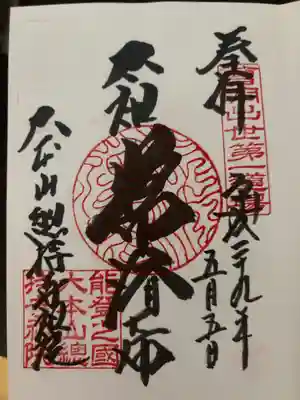 奉拝
曹洞出世第一道場
平成二十九年
五月五日
太祖
常済大師
大本山總持寺祖院
能登之國
大本山總
持寺祖院